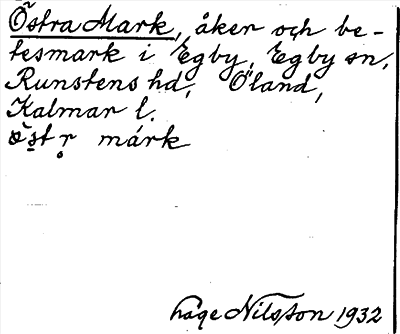 Östra Mark, åker och be-
tesmark i Egby, Egby sn,
Runstens hd, Öland,
Kalmar l.
öst r̥ márk
Håge Nilsson 1932